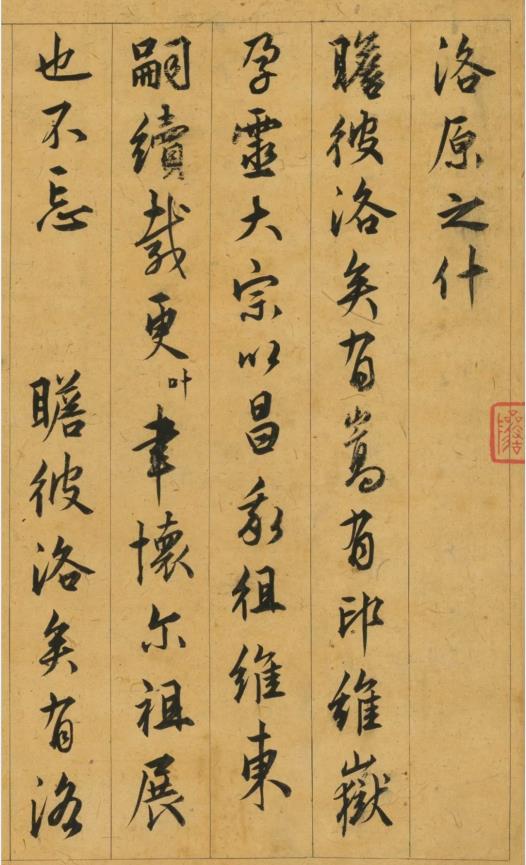 洛原之什
瞻彼洛矣有嵩有邙維嶽
孕靈大宗以昌我徂維東
嗣續載更叶聿懷尔祖展
也不忘　瞻彼洛矣有洛